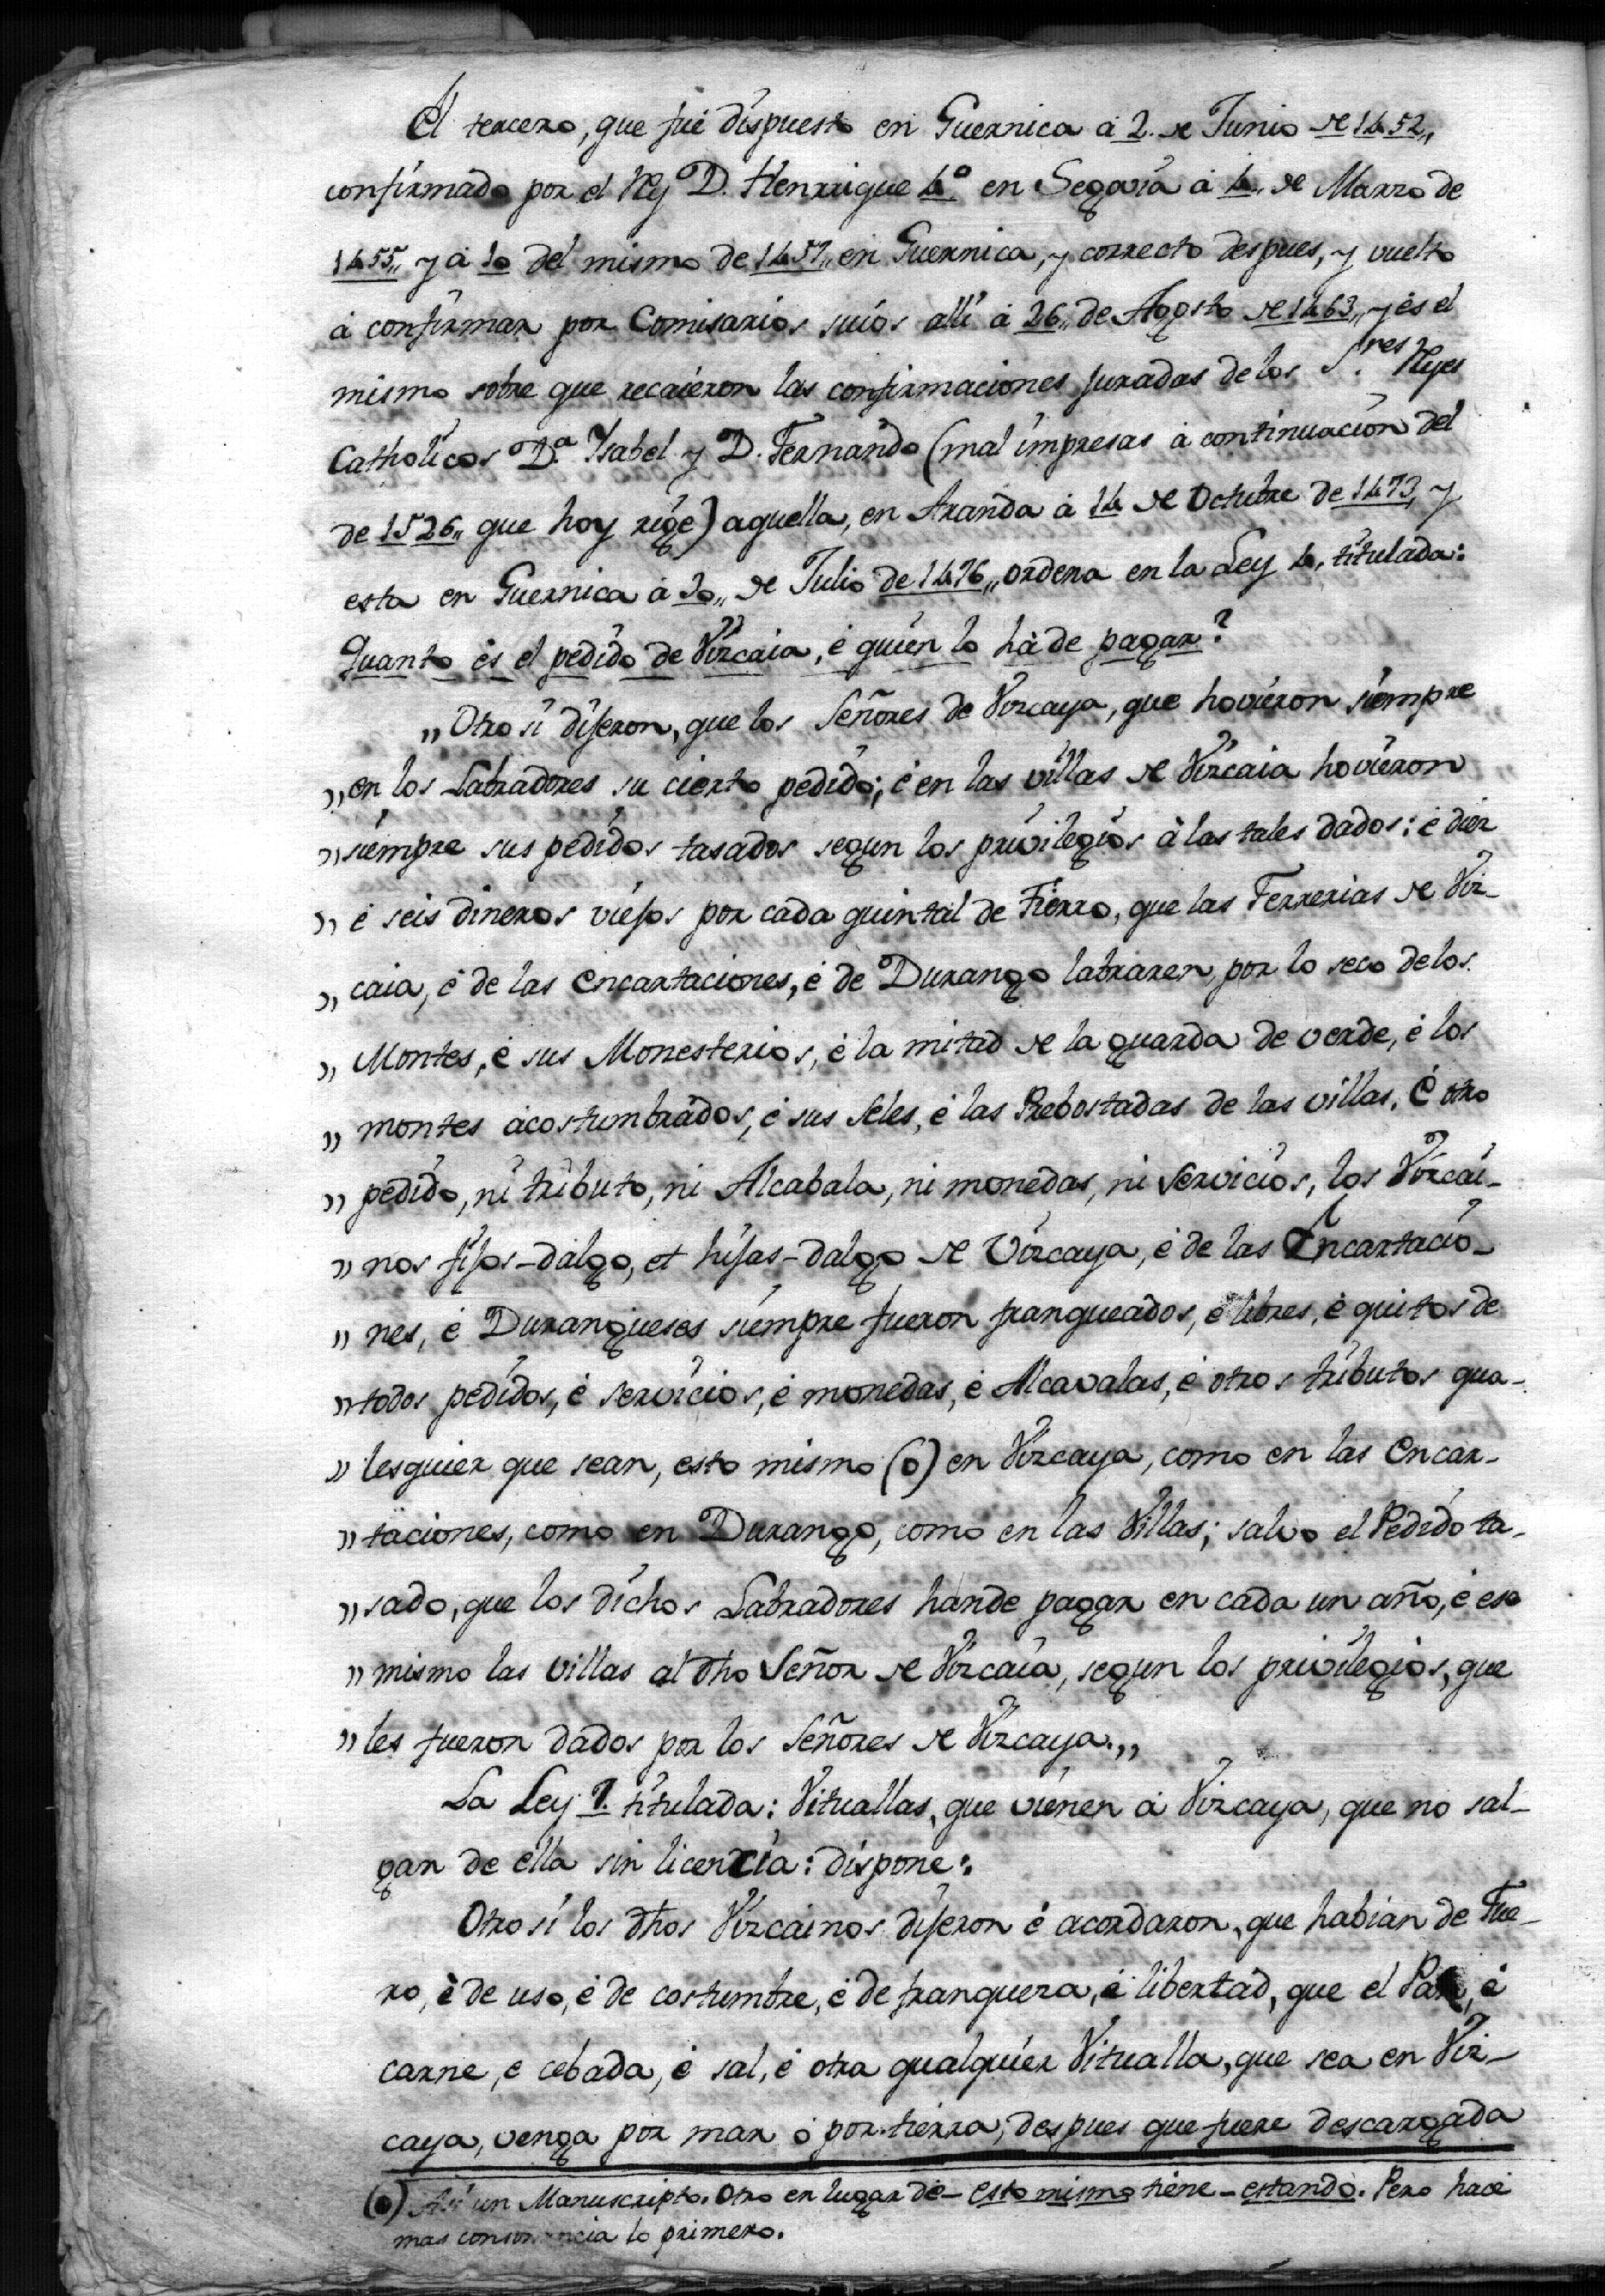 El tercero, que fué dispuesto en Guernica á 2. de Junio de 1452,,
confirmado por el Rey D. Henrrique 4º en Segovia á 4. de Marzo de
1455,, y á 10 del mismo de 1457,, en Guernica, y correcto despues, y vuelto
á confirmar por Comisarios suios allí á 26,, de Agosto de 1463,, y és el
mismo sobre que recaieron las confirmaciones juradas de los S.res Reyes
Catholicos D.ª Ysabel y D. Fernando (mal impresas á continuacion del
de 1526,, que hoy rige) aquella, en Aranda á 14 de Octubre de 1473, y
esta en Guernica á 30,, de Julio de 1476,, ordena en la Ley 4, titulada:
Quanto és el pedido de Vizcaia, é quién lo há de pagar?
,, Otro si dijeron, que los Señores de Vizcaya, que hovieron siempre
,, en los Labradores su cierto pedido; é en las villas de Vizcaia hovieron
,, siempre sus pedidos tasados segun los privilegios á las tales dados: é diez
,, é seis dineros viejos por cada quintal de Fierro, que las Ferrerias de Viz-
,, caia, é de las Encartaciones, é de Durango labraren, por lo seco de los
,, Montes, é sus Monesterios, é la mitad de la guarda de verde, é los
,, montes acostumbrados, é sus Seles, é las Prebostadas de las villas. É otro
,, pedido, ni tributo, ni Alcabala, ni monedas, ni Servicios, los Vizcai-
,, nos fijos-dalgo, et hijas-dalgo de Vizcaya, é de las Encartacio-
,, nes, é Durangueses siempre fueron franqueados, é libres, é quitos de
,, todos pedidos, é servicios, é monedas, é Alcavalas, é otros tributos qua-
,, lesquier que sean, esto mismo (o) en Vizcaya, como en las Encar-
,, taciones, como en Durango, como en las Villas; salvo el Pedido ta-
,, sado, que los dichos Labradores hande pagar en cada un año, é eso
,, mismo las Villas al dho Señor de Vizcaia, segun los privilegios, que
,, les fueron dados por los Señores de Vizcaya.,,
La Ley 7. titulada: Vituallas, que vienen á Vizcaya, que no sal-
gan de ella sin licencia: dispone:
Otro sí los dhos Vizcainos dijeron é acordaron, que habian de Fue-
ro, é de uso, é de costumbre, é de franqueza, é libertad, que el Pan, é
carne, é cebada, é sal, é otra qualquier Vitualla, que sea en Viz-
caya, venga por mar ó por tierra, despues que fuere descargada
(o) Asi un Manuscripto. Otro en lugar de - esto mismo tiene - estando. Pero hace
mas consonancia lo primero.